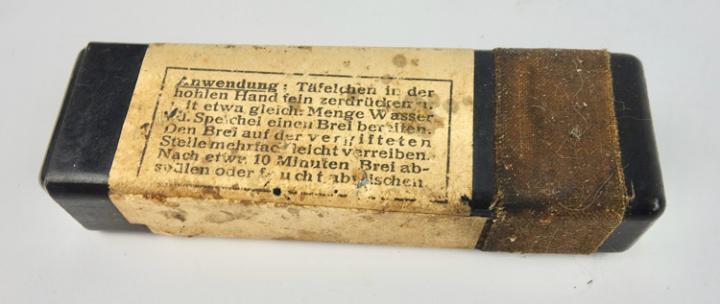 Anwendung: Täfelchen in der
hohlen Hand fein zerdrücken u.
it etwa gleich. Menge Wasser
od. Speichel einen Brei bereiten.
Den Brei auf der vergifteten
Stelle mehrfach leicht verreiben.
Nach etwa 10 Minuten Brei ab-
spülen oder feucht abwischen.